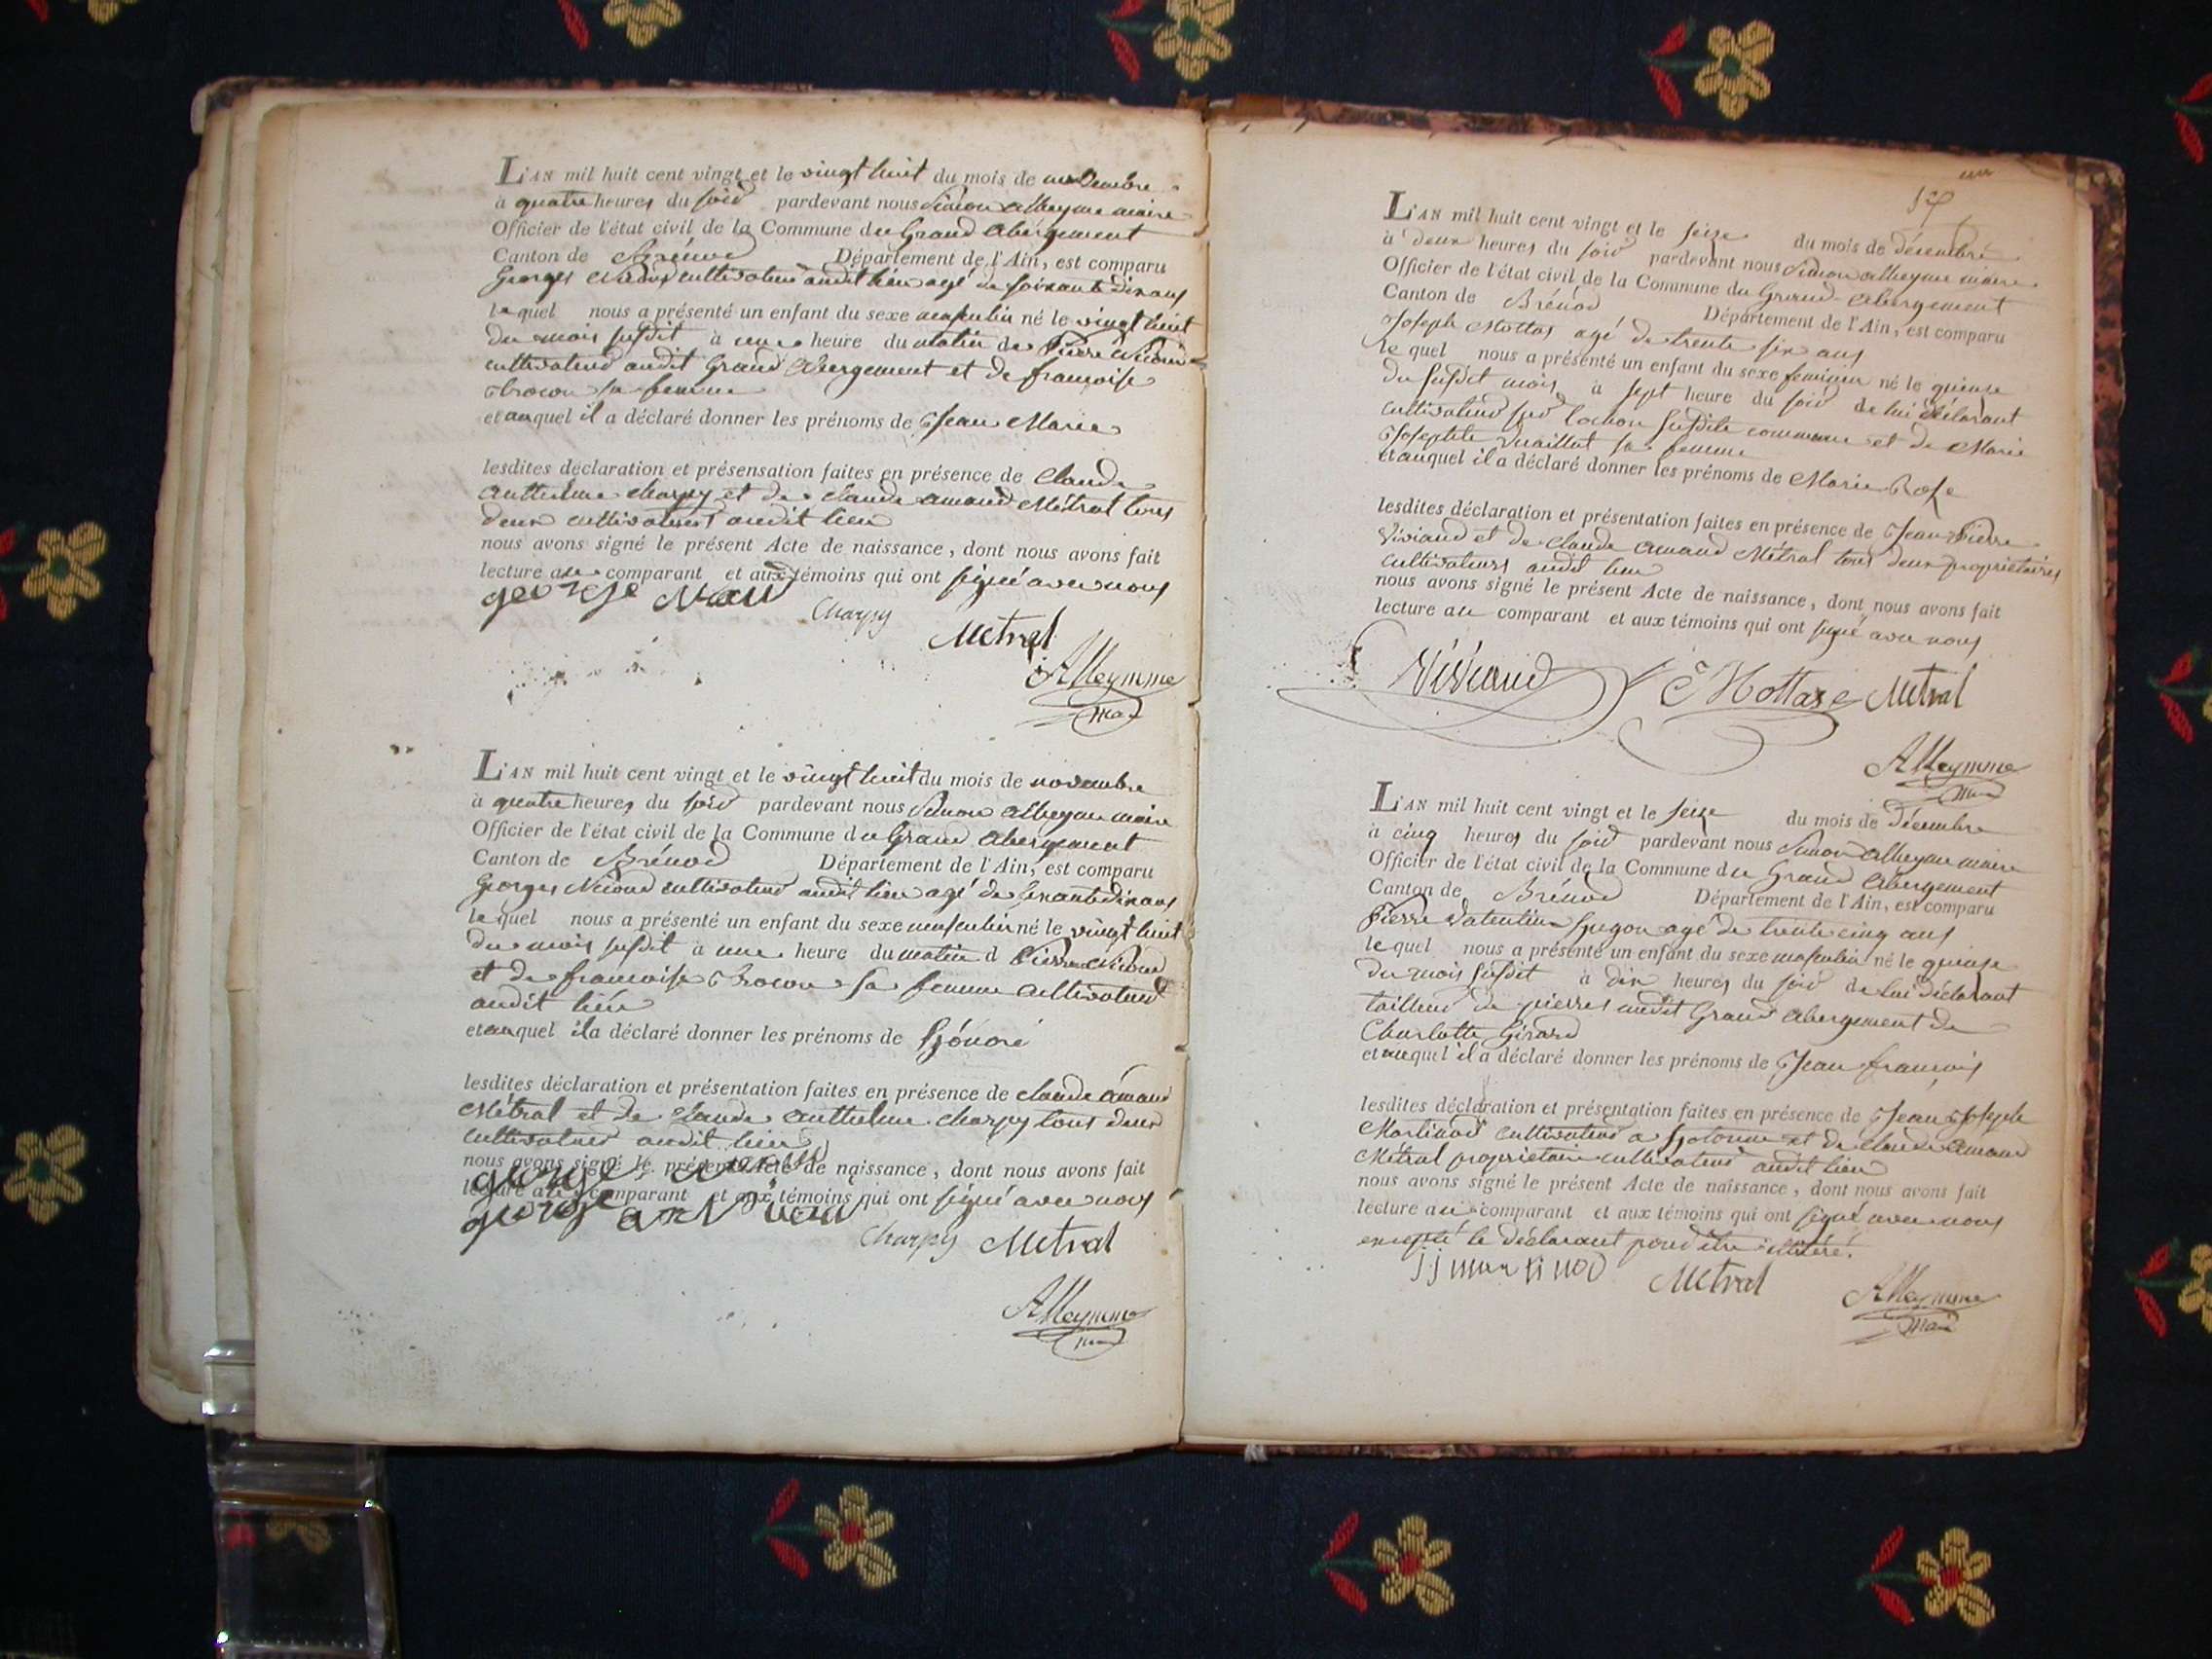 L'AN mil huit cent vingt et le vingt huit du mois de novembre
à quatre heures du soir pardevant nous Simon alleyme maire
Officier de l'état civil de la Commune du Grand abergement
Canton de Brénod Département de l'Ain, est comparu
Georges cultivateur audit lieu agé de soixante dix ans
lequel nous a présenté un enfant du sexe masculin né le vingt huit
du mois susdit à une heure du matin de Pierre
cultivateur audit Grand abergement et de françoise
sa femme
et auquel il a déclaré donner les prénoms de Jean Marie
lesdites déclaration et présensation faites en présence de Claude
anthelme charpy et de claude amand Métral tous
deux cultivateurs audit lieu
nous avons signé le présent Acte de naissance, dont nous avons fait
lecture au comparant et aux témoins qui ont signé avec nous
george
Charpy
Metral
Alleymme
L'AN mil huit cent vingt et le vingt huit du mois de novembre
à quatre heures du soir pardevant nous Simon alleyme maire
Officier de l'état civil de la Commune du Grand abergement
Canton de Brénod Département de l'Ain, est comparu
Georges cultivateur audit lieu agé de soixante dix ans
lequel nous a présenté un enfant du sexe masculin né le vingt huit
du mois susdit à une heure du matin d Pierre
et de francoise sa femme cultivateur
audit lieu
et auquel il a déclaré donner les prénoms de honoré
lesdites déclaration et présentation faites en présence de claude amand
Métral et de Claude anthelme charpy tous deux
cultivateurs audit lieu
nous avons signé le présent Acte de naissance, dont nous avons fait
lecture au comparant et aux témoins qui ont signé avec nous
george
Charpy Metral
Alleymme
L'AN mil huit cent vingt et le seize du mois de décembre
à deux heures du soir pardevant nous Simon alleyme maire
Officier de l'état civil de la Commune du Grand abergement
Canton de Brénod Département de l'Ain, est comparu
Joseph Mottas agé de trente six ans
lequel nous a présenté un enfant du sexe feminin né le quinze
du susdit mois à sept heure du soir de lui déclarant
cultivateur sur susdite commune et de Marie
Josephte sa femme
et auquel il a déclaré donner les prénoms de Marie Rose
lesdites déclaration et présentation faites en présence de Jean Pierre
Viviand et de claude amand Métral tous deux propriétaires
cultivateurs audit lieu
nous avons signé le présent Acte de naissance, dont nous avons fait
lecture au comparant et aux témoins qui ont signé avec nous
Viviand Mottas Metral
Alleymme
L'AN mil huit cent vingt et le seize du mois de décembre
à cinq heures du soir pardevant nous Simon alleyme maire
Officier de l'état civil de la Commune du Grand abergement
Canton de Brénod Département de l'Ain, est comparu
Pierre Valentin hugon agé de trente cinq ans
lequel nous a présenté un enfant du sexe masculin né le quinze
du mois susdit à dix heures du soir de lui déclarant
tailleur de pierres audit Grand abergement de
Charlotte Girard
et auquel il a déclaré donner les prénoms de Jean françois
lesdites déclaration et présentation faites en présence de Jean Joseph
Martinod cultivateur a hotonne et de claude amand
Métral propriétaire cultivateur audit lieu
nous avons signé le présent Acte de naissance, dont nous avons fait
lecture au comparant et aux témoins qui ont signé avec nous
excepté le déclarant pour être illitéré.
jj martinod Metral
Alleymme